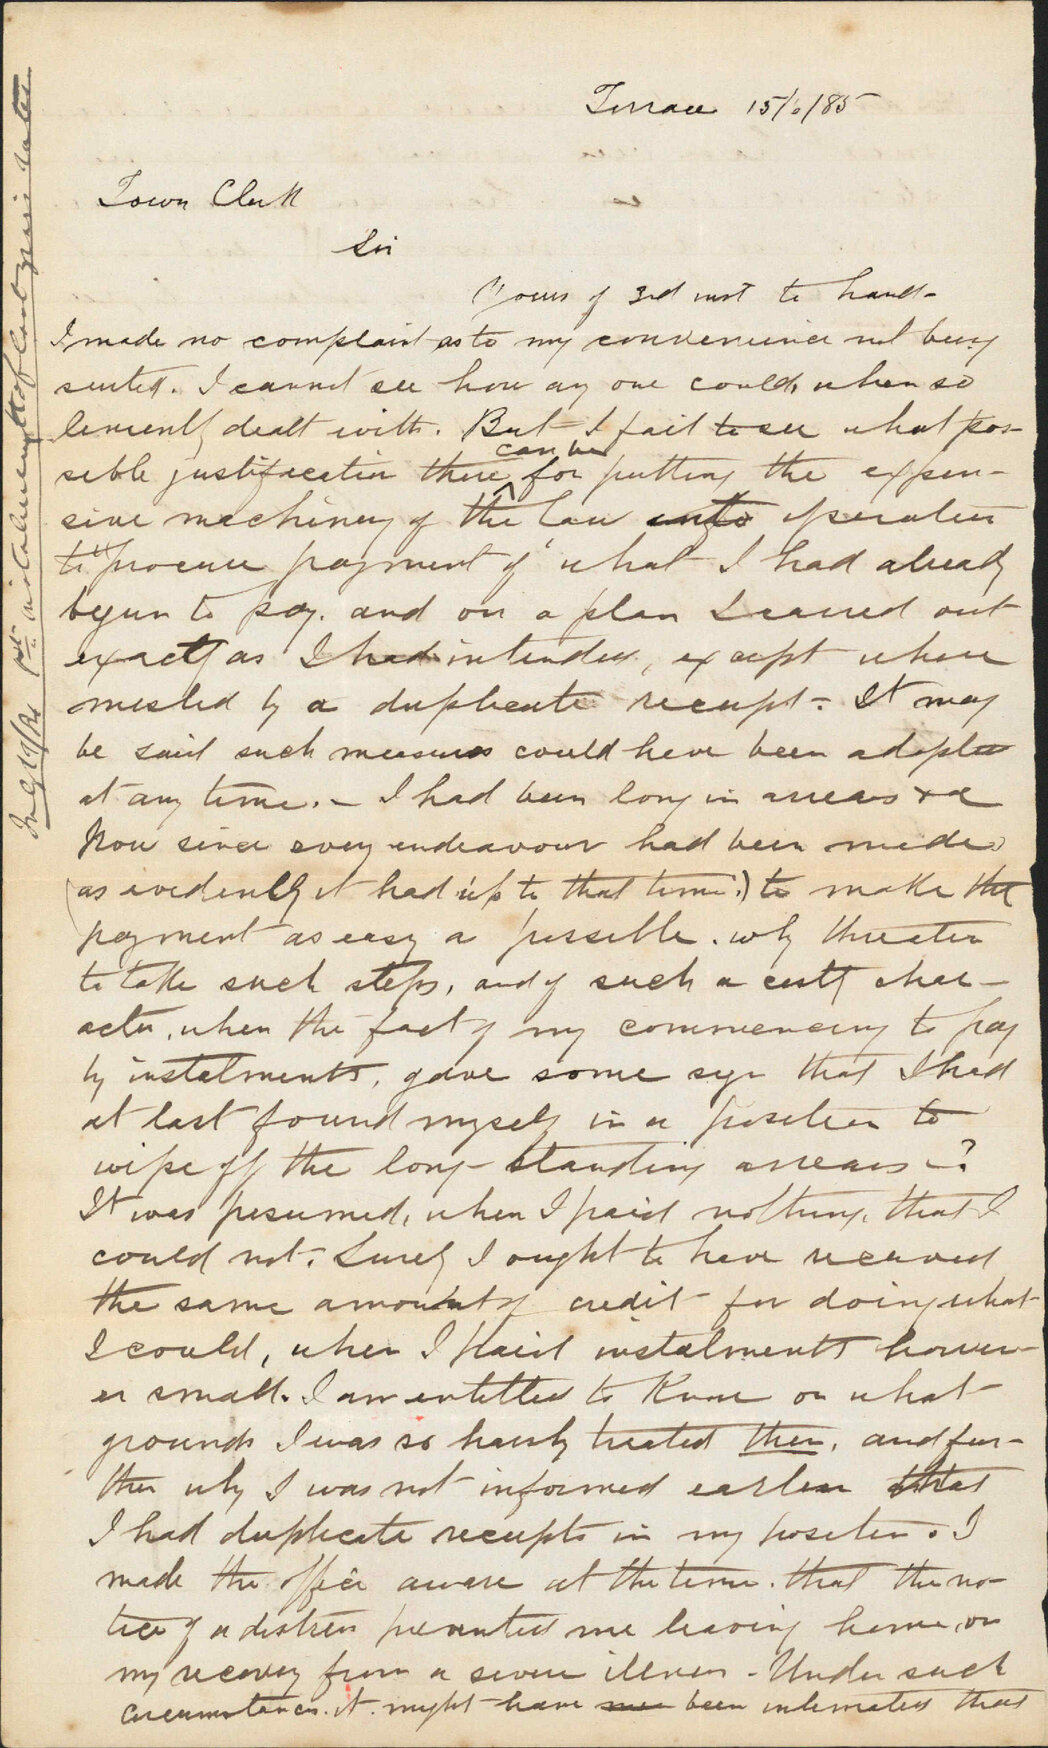 Terrace 15/6/85
Town Clerk
Sir
Yours of 3rd inst to hand-
I made no complaint as to my convenience not being
suited. I cannot see how any one could, when so
leniently dealt with. But I fail to see what pos-
sible justification there can be for putting the expen-
sive machinery of the law into operation
to "procure payment of" what I had already
begun to pay. and on a plan I carried out
exactly as I had intended, except where
misled by a duplicate receipt- It may
be said such measures could have been adopted
at any time. - I had been long in arrears &c
Now since every endeavour had been made
(as evidently it had up to that time) to make the
payment as easy as possible. why threaten
to take such steps, and of such a costly char-
acter, when the fact of my commencing to pay
by instalments, gave some sign that I had
at last found myself in a position to
wipe off the long-standing arrears -?
It was presumed, when I paid nothing, that I
could not. Surely I ought to have received
the same amount of credit for doing what
I could, when I paid instalments howev-
er small. I am entitled to know on what
grounds I was so harshly treated then, and fur-
ther why I was not informed earlier that
I had duplicate receipts in my position. I
made the office aware at the time. that the no-
tice of a distress prevented me leaving home, on
my recovery from a severe illness - Under such
circumstances. it might have been intimated that
1st instalment of last years rates